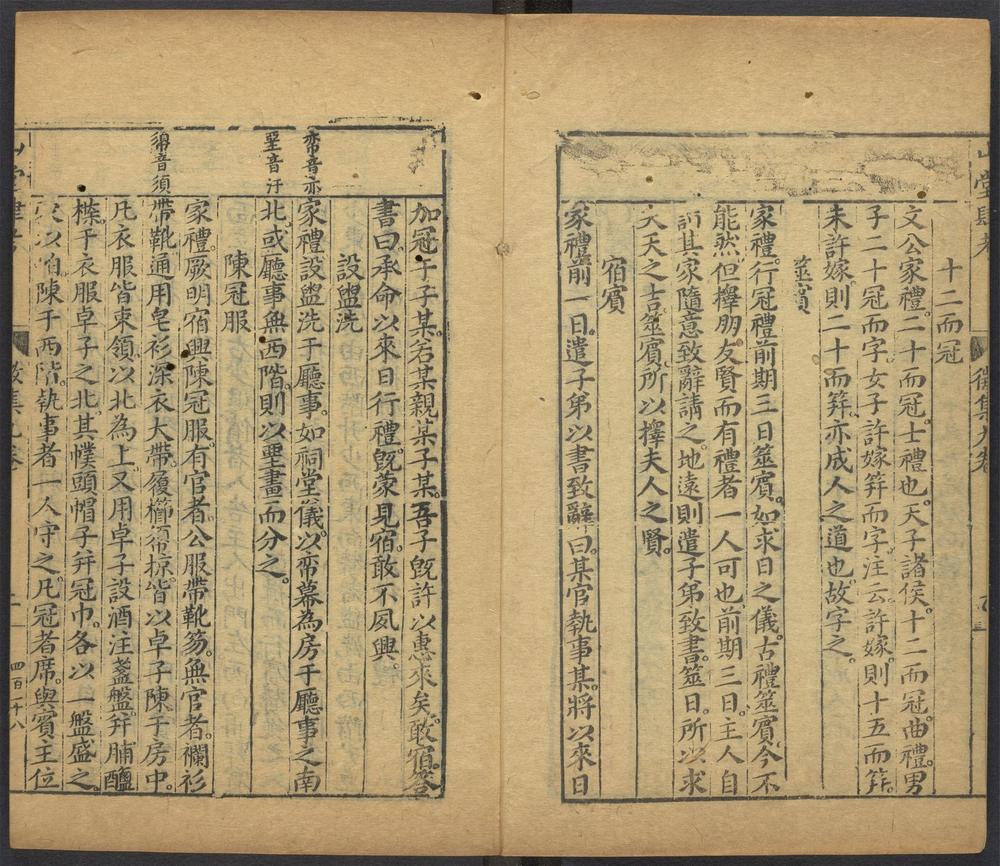 十二而冠
文公家禮。二十而冠。士禮也。天子諸侯。十二而冠。曲禮。男
子二十冠而字。女子許嫁笄而字。注云。許嫁。則十五而笄。
未許嫁。則二十而笄。亦成人之道也。故字之。
筮賓
家禮。行冠禮前期三日筮賓。如求日之儀。古禮筮賓。今不
能然。但擇朋友賢而有禮者一人可也。前期三日。主人自
詣其家。隨意致辭請之。地遠則遣子弟致書。筮日。所以求
夫天之吉。筮賓。所以擇夫人之賢。
宿賓
家禮。前一日。遣子弟以書致辭曰。某官執事某。將以來日
加冠于子某。若某親某子某。吾子旣許以惠來矣。敢宿。答
書曰。承命以來日行禮。旣蒙見宿。敢不夙興。
設盥洗
帟音亦
家禮。設盥洗于廳事。如祠堂儀。以帟幕為房于廳事之南
堊音汙
北。或廳事無西階。則以堊畫而分之。
陳冠服
家禮。厥明宿興。陳冠服。有官者。公服帶靴笏。無官者。襴衫
𢄼音須
帶靴。通用皂衫深衣大帶。履櫛掠。皆以卓子陳于房中。
凡衣服皆東領。以北為上。又用卓子設酒注盞盤。幷脯醢
楪。于衣服卓子之北。其幞頭帽子幷冠巾。各以一盤盛之。
以帕。陳于西階。執事者一人守之。凡冠者席。與賓主位
四百二十八